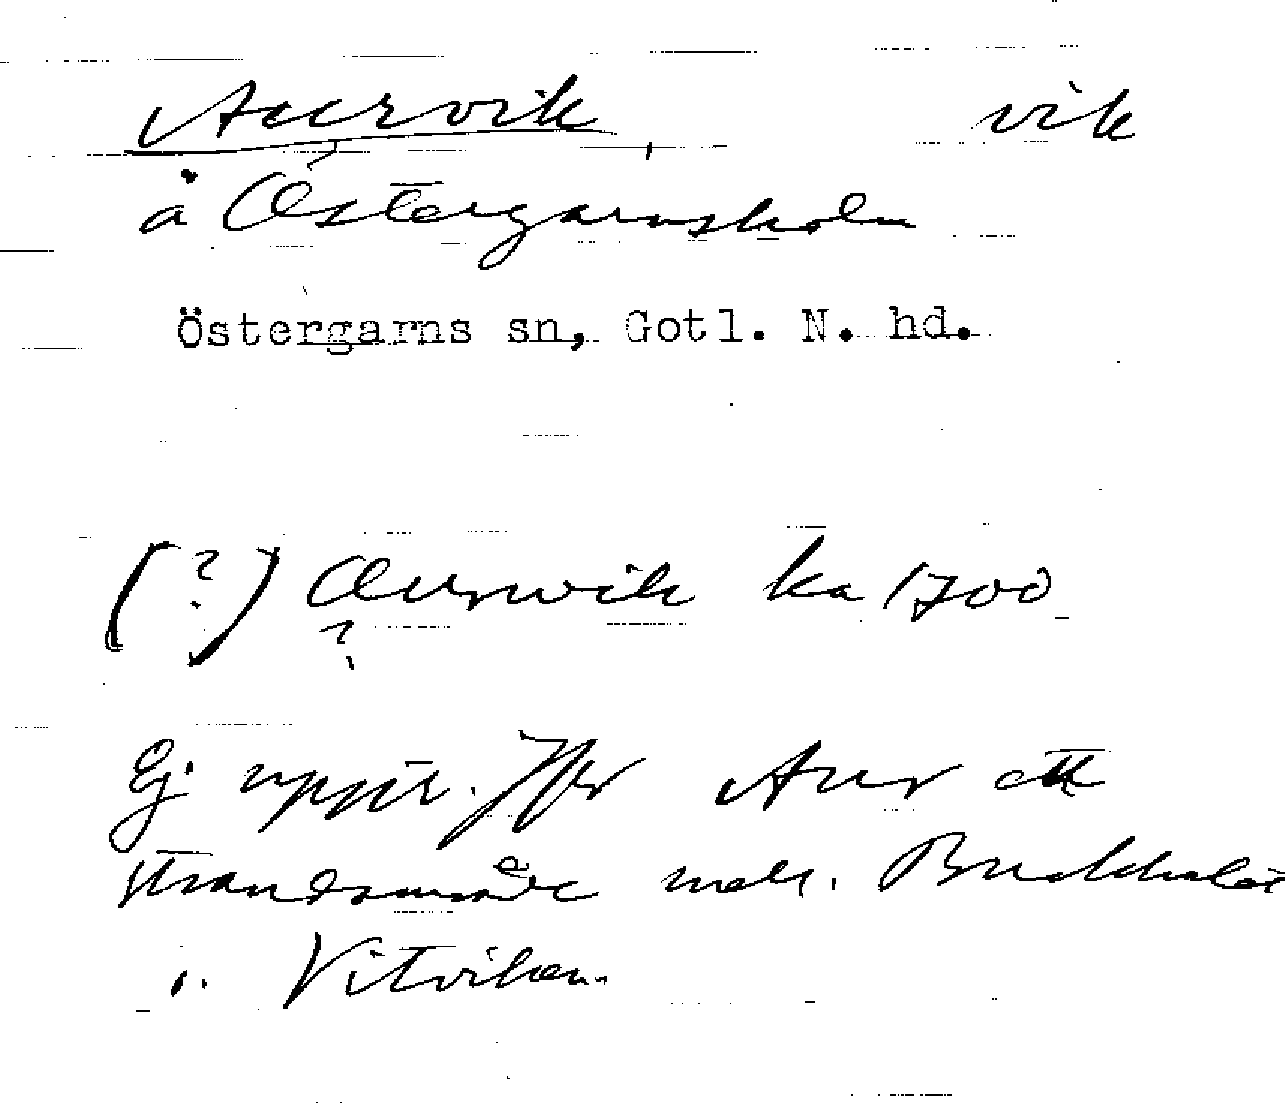 Aurvik, vik
å Östergarnsholm
Östergarns sn, Gotl. N. hd.
(?) Aurwik ka 1700
?
Ej uppt. Jfr Aur ett
strandområde mell.
i Vitviken.